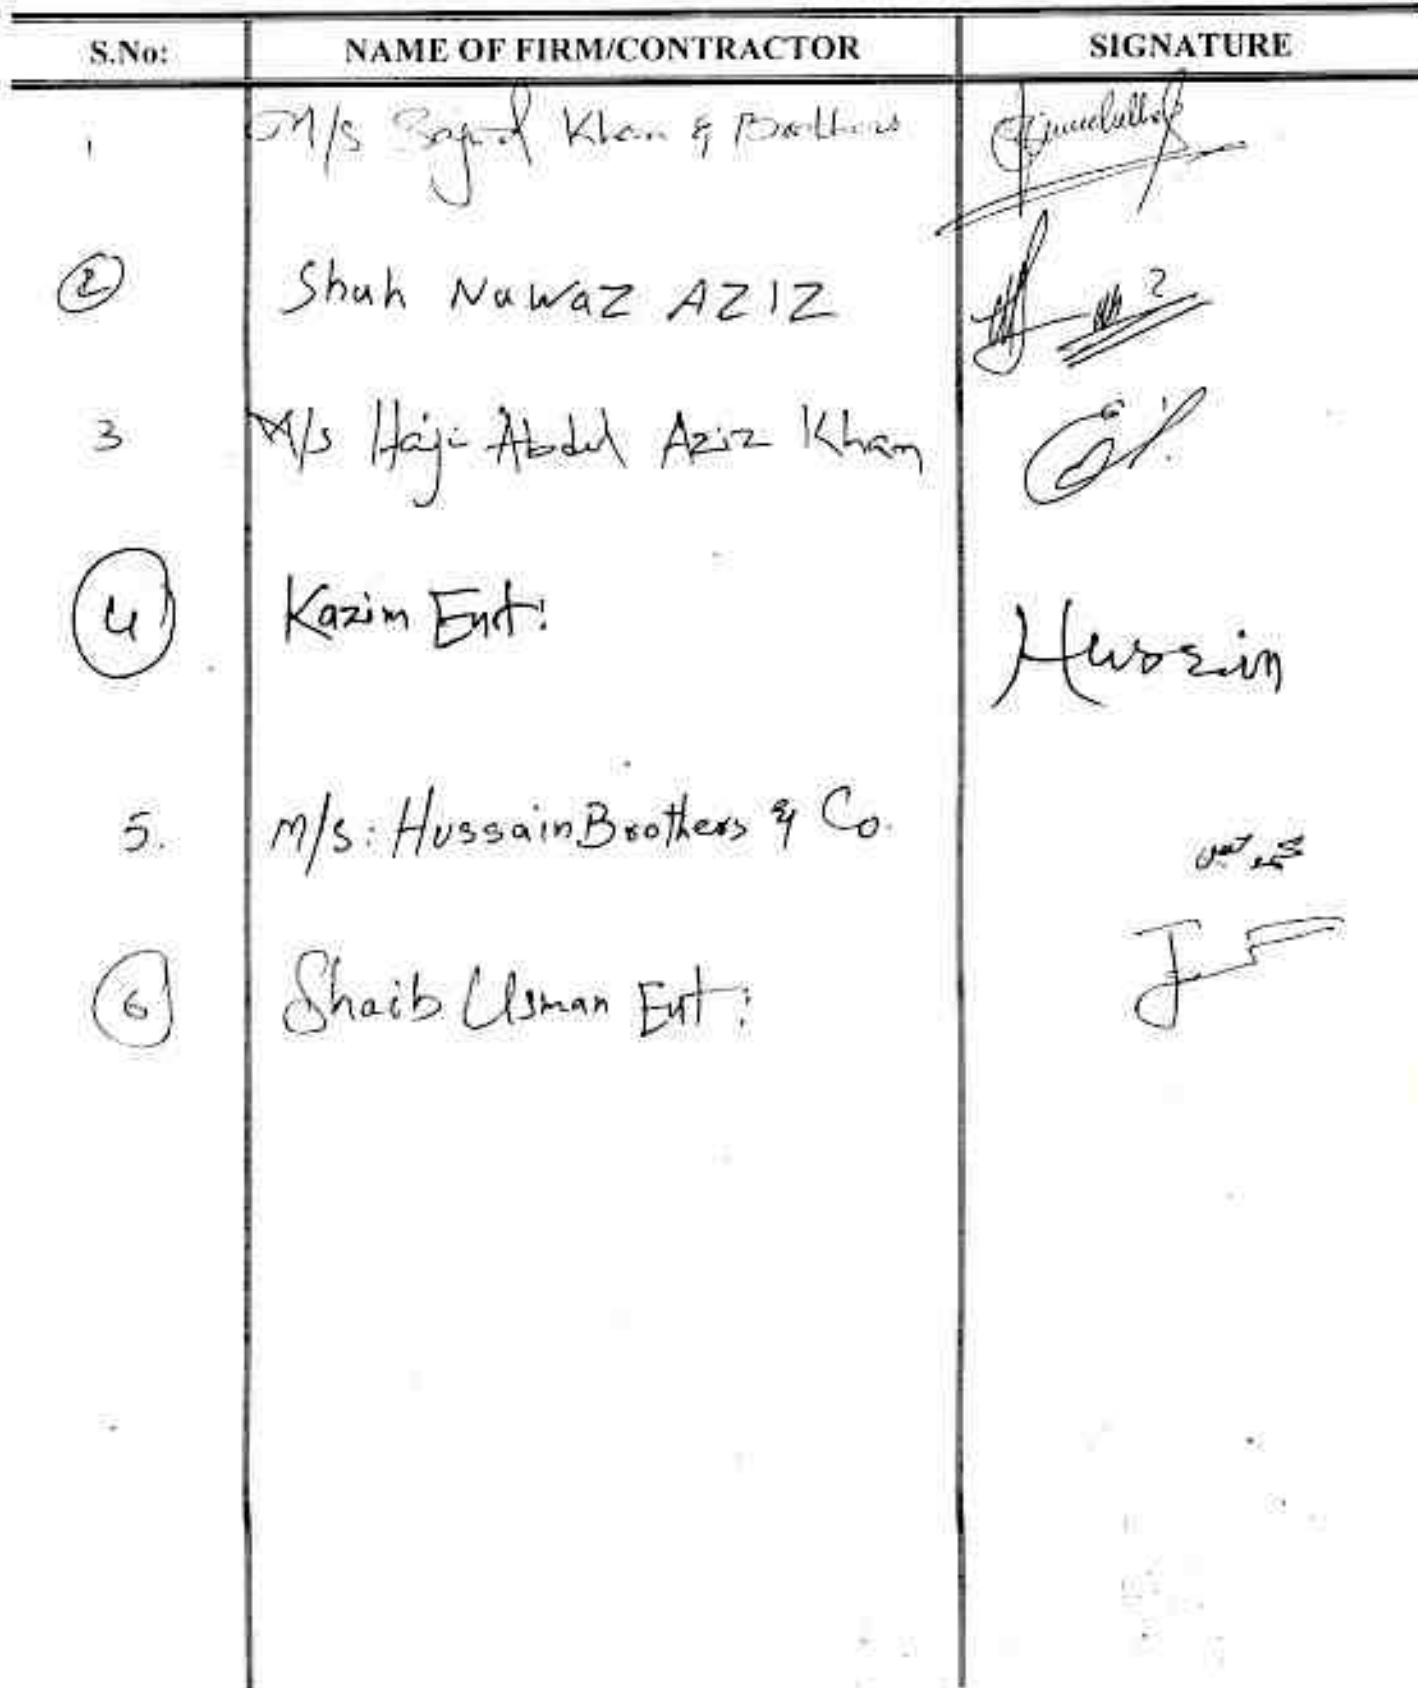 S.No: NAME OF FIRM/CONTRACTOR SIGNATURE
1 M/s Khan & Brothers
2 Shah Nawaz AZIZ
3 M/s Haji Abdul Aziz Khan
4 Kazim Ent: Hussain
5. M/s: Hussain Brothers & Co.
6 Shaib Usman Ent: